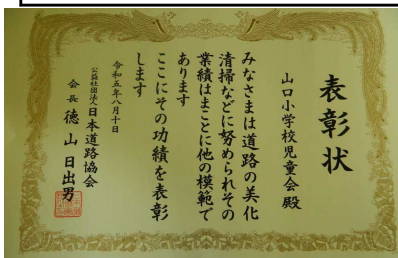 表彰状
山口小学校児童会殿
みなさまは道路の美化
清掃などに努められその
業績はまことに他の模範で
あります
ここにその功績を表彰
します
令和五年八月十日
公益社団法人日本道路協会
会長 徳山日出男